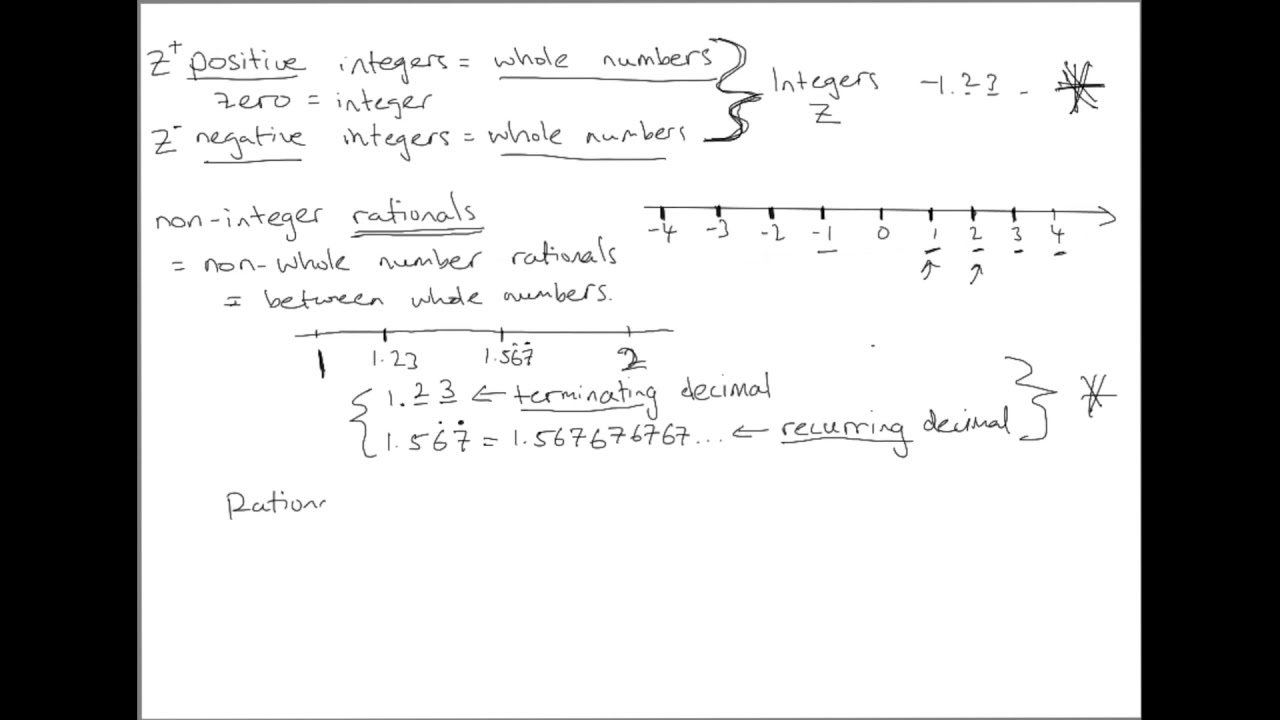 Z⁺ positive integers = whole numbers
zero = integer
Z⁻ negative integers = whole numbers
Integers
Z
-1.23
non-integer rationals
= non-whole number rationals
= between whole numbers.
-4 -3 -2 -1 0 1 2 3 4
1 1.23 1.56̇7̇ 2
1.23 ← terminating decimal
1.56̇7̇ = 1.567676767... ← recurring decimal
Ration